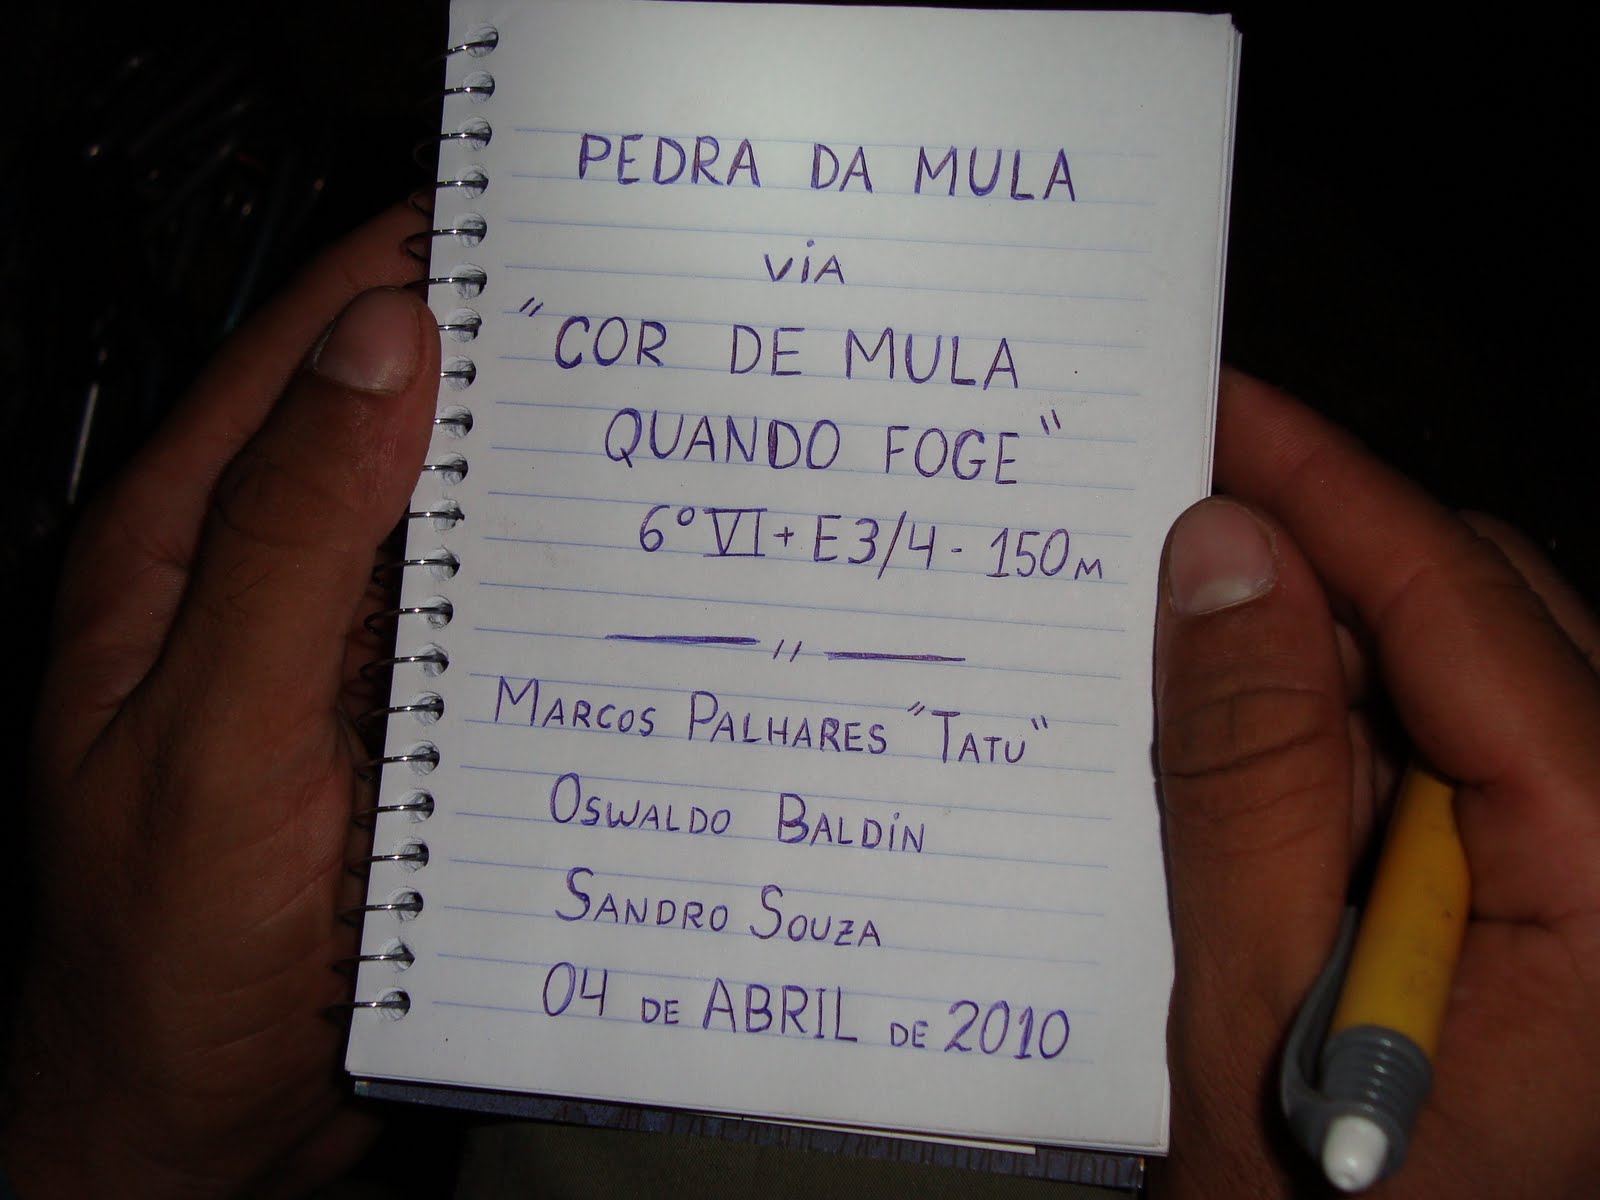 PEDRA DA MULA
VIA
"COR DE MULA
QUANDO FOGE"
6º VI+ E3/4 - 150M
MARCOS PALHARES "TATU"
OSWALDO BALDIN
SANDRO SOUZA
04 DE ABRIL DE 2010